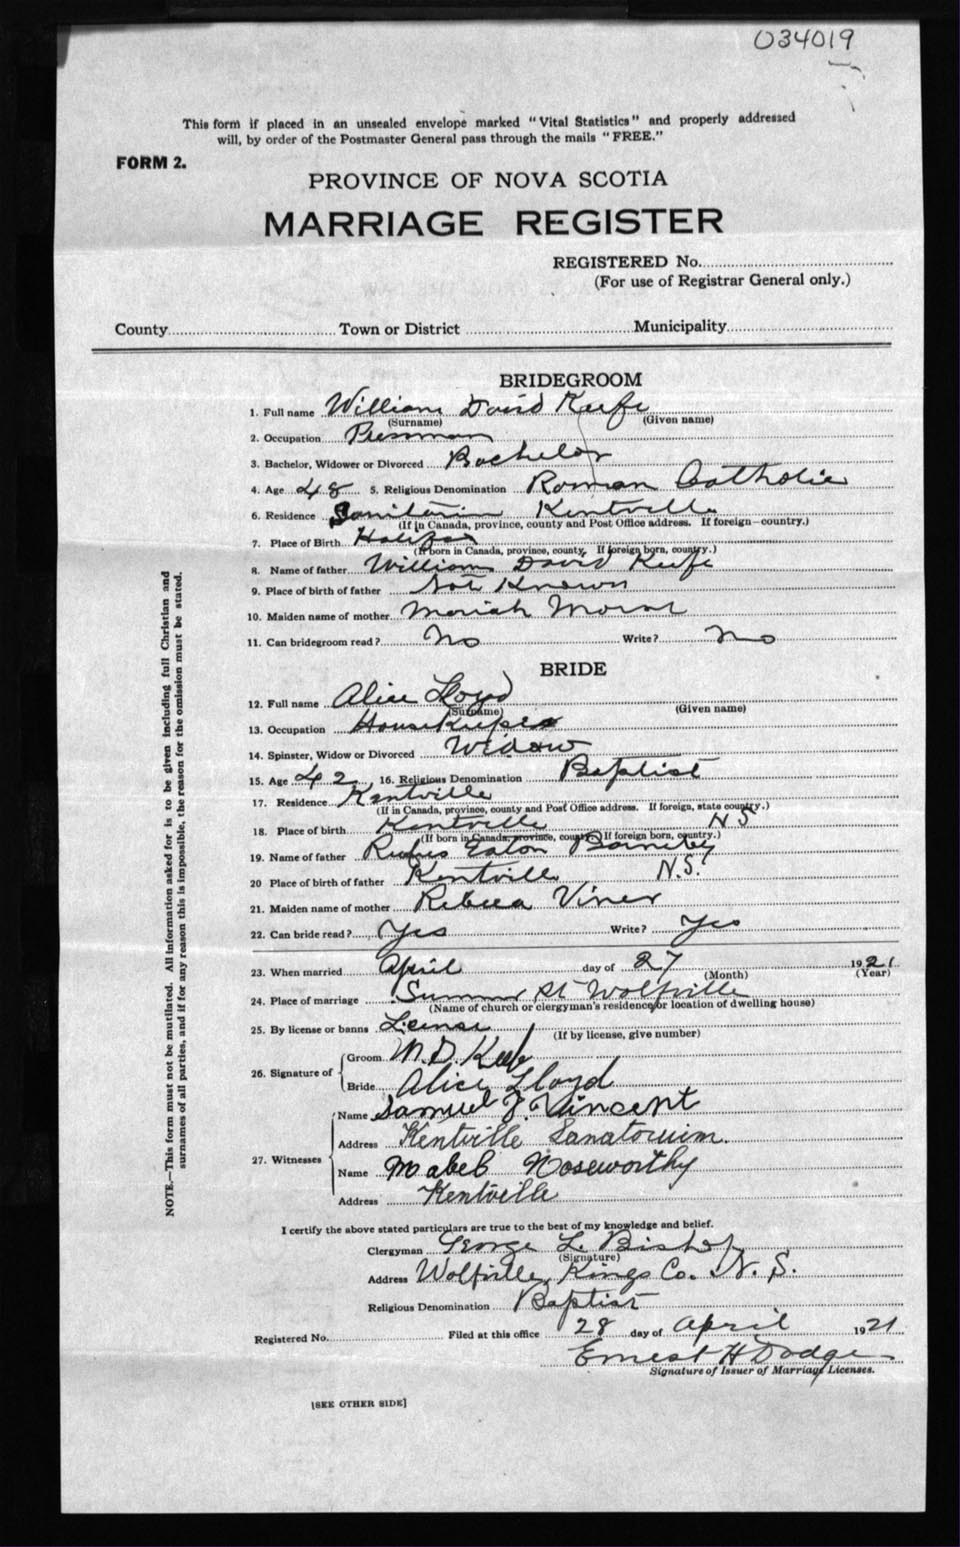 034019
This form if placed in an unsealed envelope marked "Vital Statistics" and properly addressed
will, by order of the Postmaster General pass through the mails "FREE."
FORM 2.
PROVINCE OF NOVA SCOTIA
MARRIAGE REGISTER
REGISTERED No.
(For use of Registrar General only.)
County Town or District Municipality
BRIDEGROOM
1. Full name William David Keefe
(Surname) (Given name)
2. Occupation Pressman
3. Bachelor, Widower or Divorced Bachelor
4. Age 48 5. Religious Denomination Roman Catholic
6. Residence Kentville
(If in Canada, province, county and Post Office address. If foreign—country.)
7. Place of Birth Halifax
(If born in Canada, province, county. If foreign born, country.)
8. Name of father William David Keefe
9. Place of birth of father Not Known
10. Maiden name of mother Moriah
11. Can bridegroom read? No Write? No
BRIDE
12. Full name Alice Lloyd
(Surname) (Given name)
13. Occupation Housekeeper
14. Spinster, Widow or Divorced Widow
15. Age 42 16. Religious Denomination Baptist
17. Residence Kentville
(If in Canada, province, county and Post Office address. If foreign, state country.)
18. Place of birth Kentville NS
(If born in Canada, province, county. If foreign born, country.)
19. Name of father Rufus Eaton Barnaby
20 Place of birth of father Kentville N.S.
21. Maiden name of mother Rebecca Viner
22. Can bride read? Yes Write? Yes
23. When married April day of 27 1921
(Month) (Year)
24. Place of marriage Summer St Wolfville
(Name of church or clergyman's residence, or location of dwelling house)
25. By license or banns License
(If by license, give number)
26. Signature of
Groom W.D. Keefe
Bride Alice Lloyd
27. Witnesses
Name Samuel J. Vincent
Address Kentville Sanatorium.
Name Mabel Noseworthy
Address Kentville
I certify the above stated particulars are true to the best of my knowledge and belief.
Clergyman George L. Bishop
(Signature)
Address Wolfville, Kings Co. N. S.
Religious Denomination Baptist
Registered No. Filed at this office 28 day of April 1921
Ernest H Dodge
Signature of Issuer of Marriage Licenses.
[SEE OTHER SIDE]
NOTE.—This form must not be mutilated. All information asked for is to be given including full Christian and
surnames of all parties, and if for any reason this is impossible, the reason for the omission must be stated.